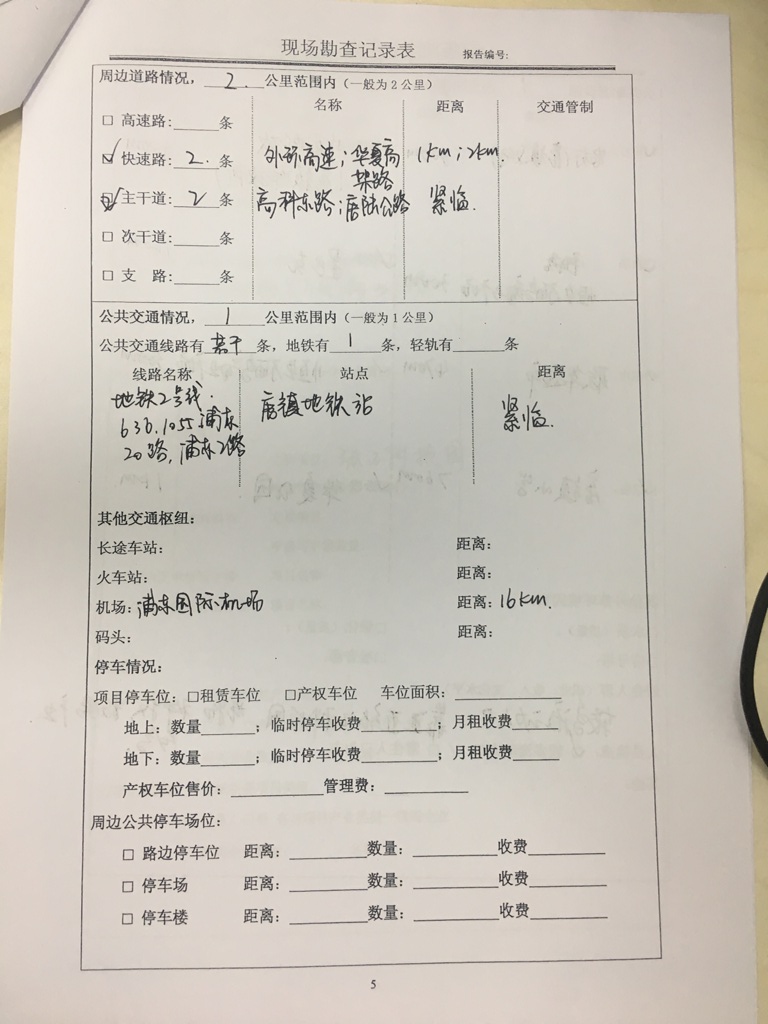 现场勘查记录表 报告编号:
周边道路情况，2.公里范围内（一般为2公里）
名称 距离 交通管制
□ 高速路:______条
☑ 快速路: 2. 条 外环高速；华夏高架路 1km；2km.
☑ 主干道: 2 条 高科东路；唐陆公路 紧临.
□ 次干道:______条
□ 支 路:______条
公共交通情况，1公里范围内（一般为1公里）
公共交通线路有 若干 条，地铁有 1 条，轻轨有______条
线路名称 站点 距离
地铁2号线. 唐镇地铁站 紧临.
636.1055浦东
20路，浦东2路
其他交通枢纽：
长途车站： 距离：
火车站： 距离：
机场：浦东国际机场 距离：16km.
码头： 距离：
停车情况：
项目停车位：□租赁车位 □产权车位 车位面积：______
地上：数量______；临时停车收费______；月租收费______
地下：数量______；临时停车收费______；月租收费______
产权车位售价：______管理费：______
周边公共停车场位：
□ 路边停车位 距离：______数量：______收费______
□ 停车场 距离：______数量：______收费______
□ 停车楼 距离：______数量：______收费______
5